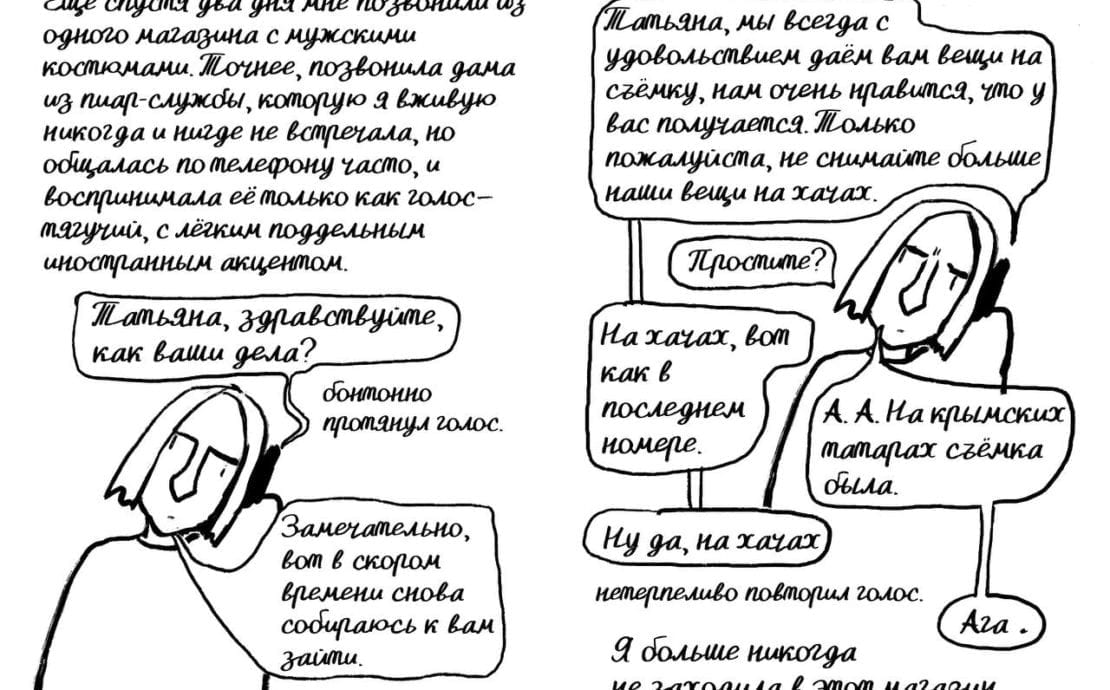 Ещё спустя два дня мне позвонили из
одного магазина с мужскими
костюмами. Точнее, позвонила дама
из пиар-службы, которую я вживую
никогда и нигде не встречала, но
общалась по телефону часто, и
воспринимала её только как голос–
тягучий, с лёгким поддельным
иностранным акцентом.
Татьяна, здравствуйте,
как ваши дела?
бонтонно
протянул голос.
Замечательно,
вот в скором
времени снова
собираюсь к вам
зайти.
Татьяна, мы всегда с
удовольствием даём вам вещи на
съёмку, нам очень нравится, что у
вас получается. Только
пожалуйста, не снимайте больше
наши вещи на хачах.
Простите?
На хачах, вот
как в
последнем
номере.
А. А. На крымских
татарах съёмка
была.
Ну да, на хачах
нетерпеливо повторил голос.
Ага.
Я больше никогда
не заходила в этот магазин